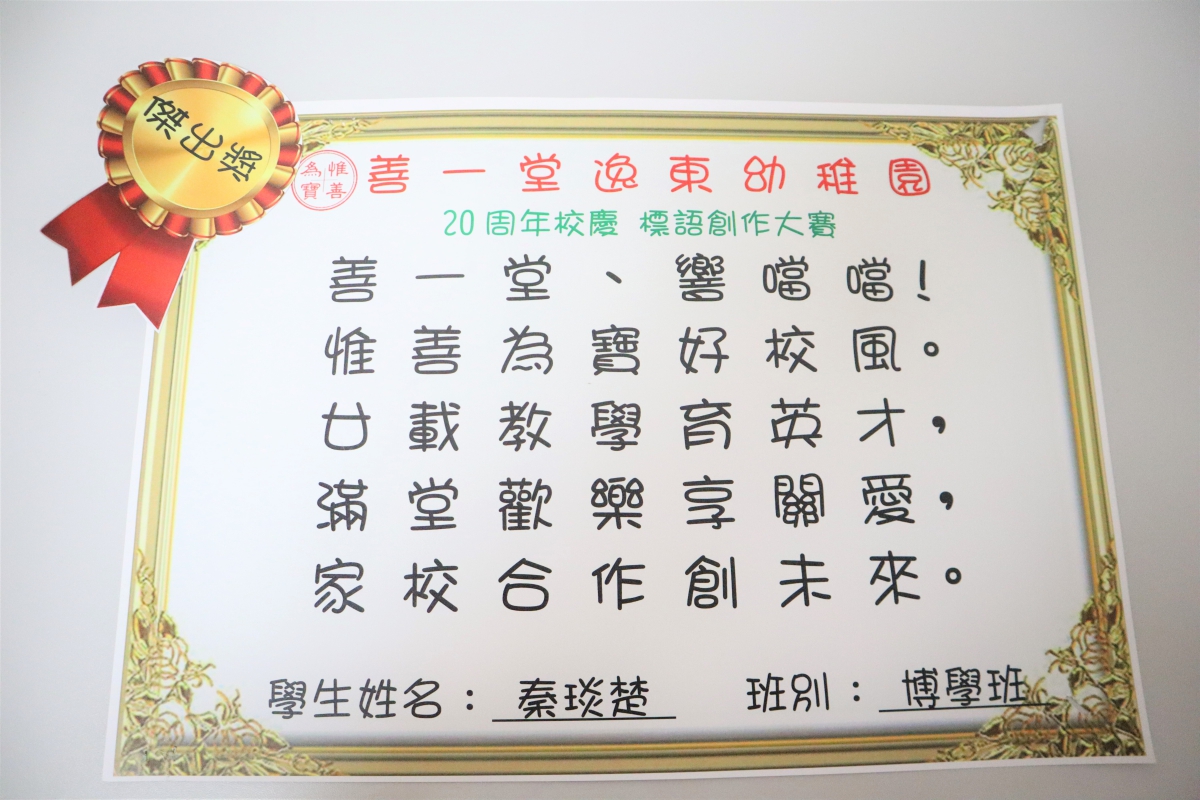 傑出獎
惟善為寶
善一堂逸東幼稚園
20周年校慶 標語創作大賽
善一堂、響噹噹！
惟善為寶好校風。
廿載教學育英才，
滿堂歡樂享關愛，
家校合作創未來。
學生姓名：秦琰楚 班別：博學班